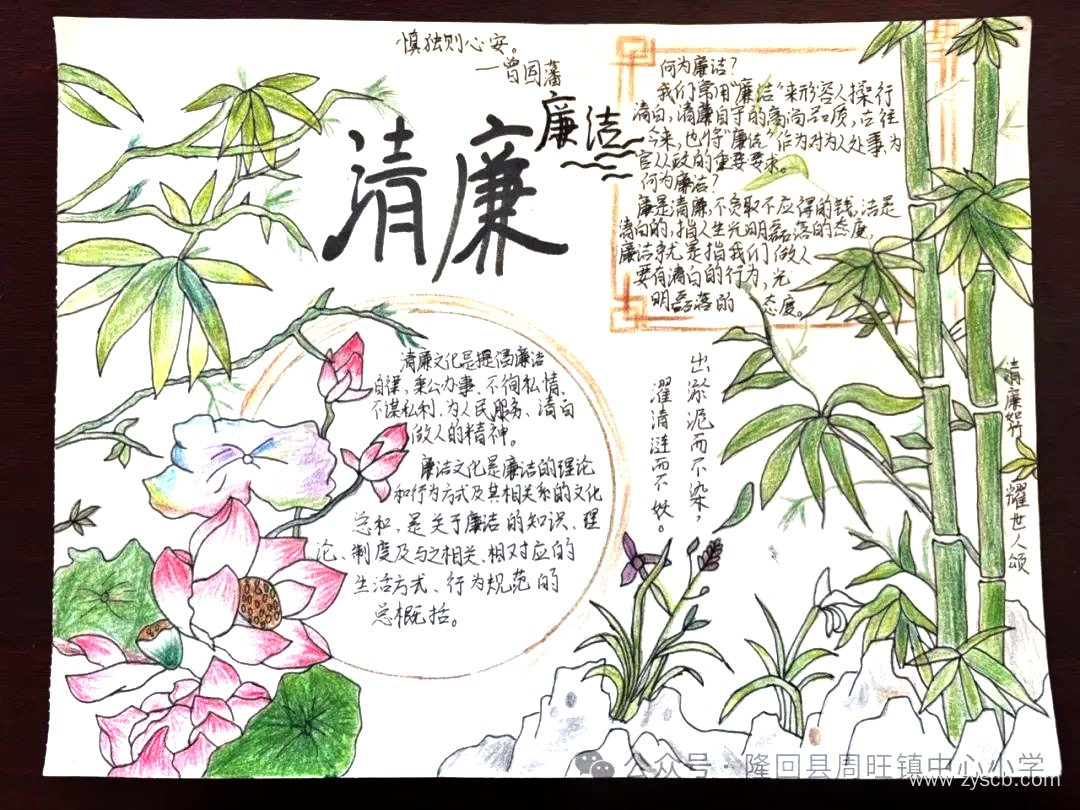 慎独则心安。
—曾国藩
清廉
廉洁
何为廉洁?
我们常用"廉洁"来形容人操行
清白,清廉自守的高尚品质,古往
今来,也将"廉洁"作为对为人处事、为
官从政的重要要求。
何为廉洁?
廉是清廉,不贪取不应得的钱,洁是
清白的,指人生光明磊落的态度,
廉洁就是指我们做人
要有清白的行为,光
明磊落的 态度。
清廉文化是提倡廉洁
自律,秉公办事、不徇私情、
不谋私利、为人民服务、清白
做人的精神。
廉洁文化是廉洁的理论
和行为方式及其相关系的文化
总和,是关于廉洁的知识、理
论、制度及与之相关、相对应的
生活方式、行为规范的
总概括。
出淤泥而不染,
濯清涟而不妖。
清廉如竹
耀世人颂
公众号·隆回县周旺镇中心小学
www.zyscb.com